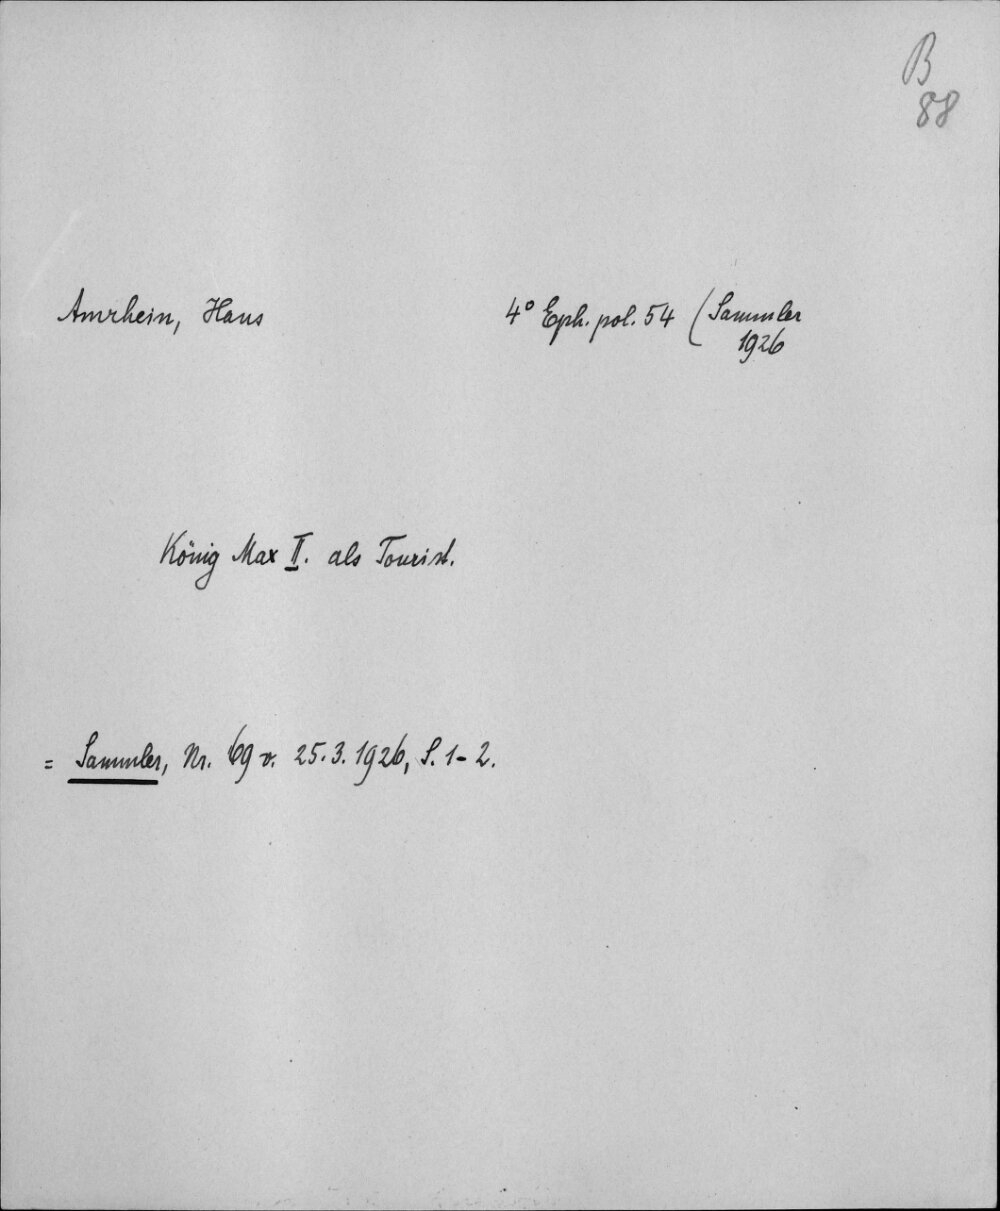 B
88
Amrhein, Hans 4° Eph. pol. 54 (Sammler
1926
König Max II. als Tourist.
= Sammler, Nr. 69 v. 25.3.1926, S. 1-2.